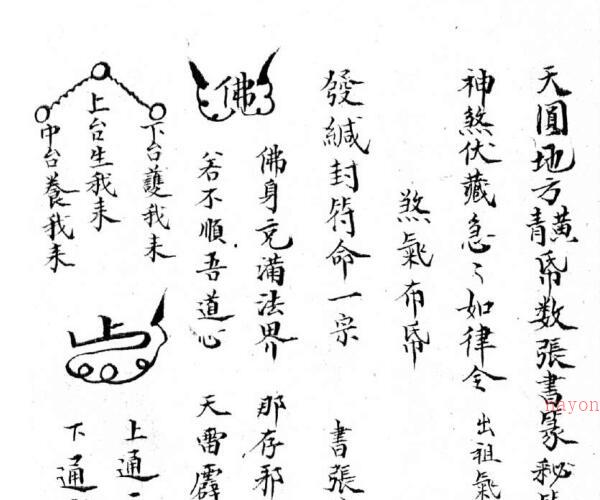 天圓地方青黃帋数張書篆秘
神煞伏藏急〻如律令 出祖氣
煞氣布帋
發緘封符命一宗 書張
佛
佛身充滿法界 那存邪
若不順吾道心 天雷霹
下台護我来
上台生我来
中台養我来
上通
下通
nayon